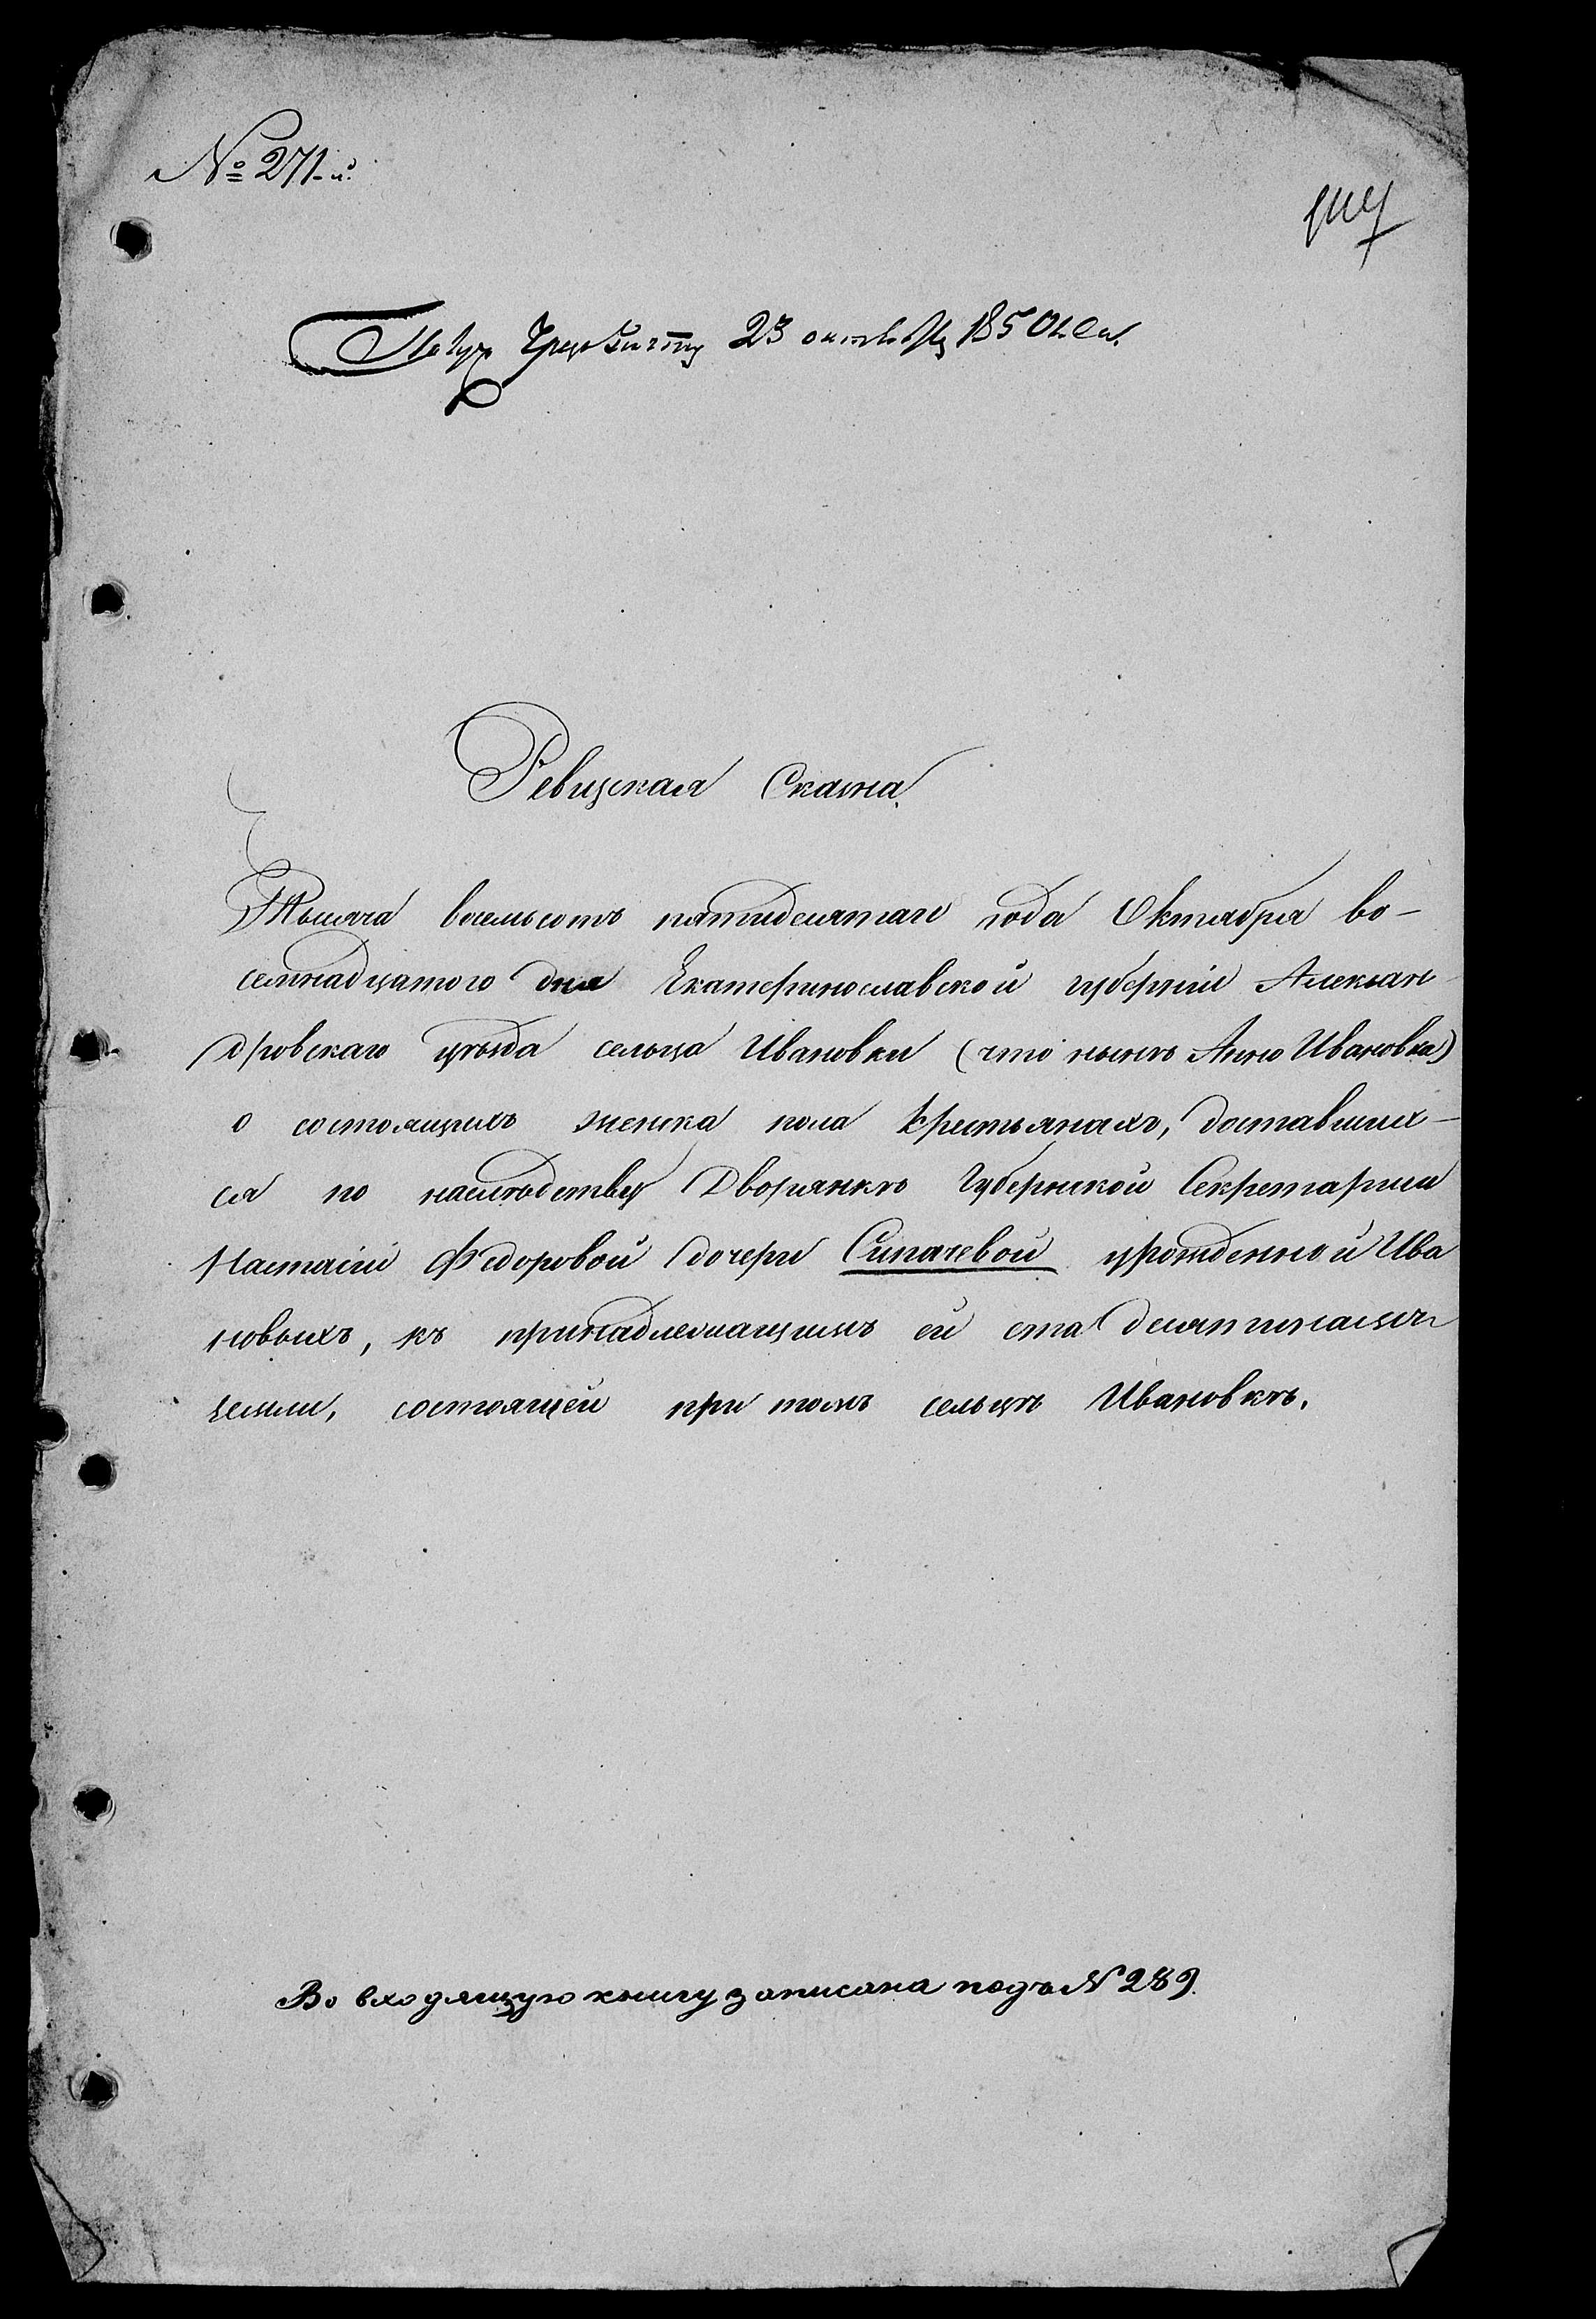 № 271-й.
23 октября 1850 года.
Ревизская Сказка.
Тысяча восемьсотъ пятидесятаго года Октября во-
семнадцатого дня Екатеринославской губерніи Алексан
дровскаго уѣзда сельца Ивановки (что нынѣ Анно Ивановка)
о состоящихъ женска пола крестьянахъ, доставших-
ся по наслѣдству Дворянкѣ Губернской Секретарши
Настасіи Федоровой дочери Сипачевой урожденной Ива
новыхъ, къ принадлежащимъ ей ста десятинамъ
земли, состоящей при томъ сельцѣ Ивановкѣ.
Во входящую книгу записана подъ № 289.